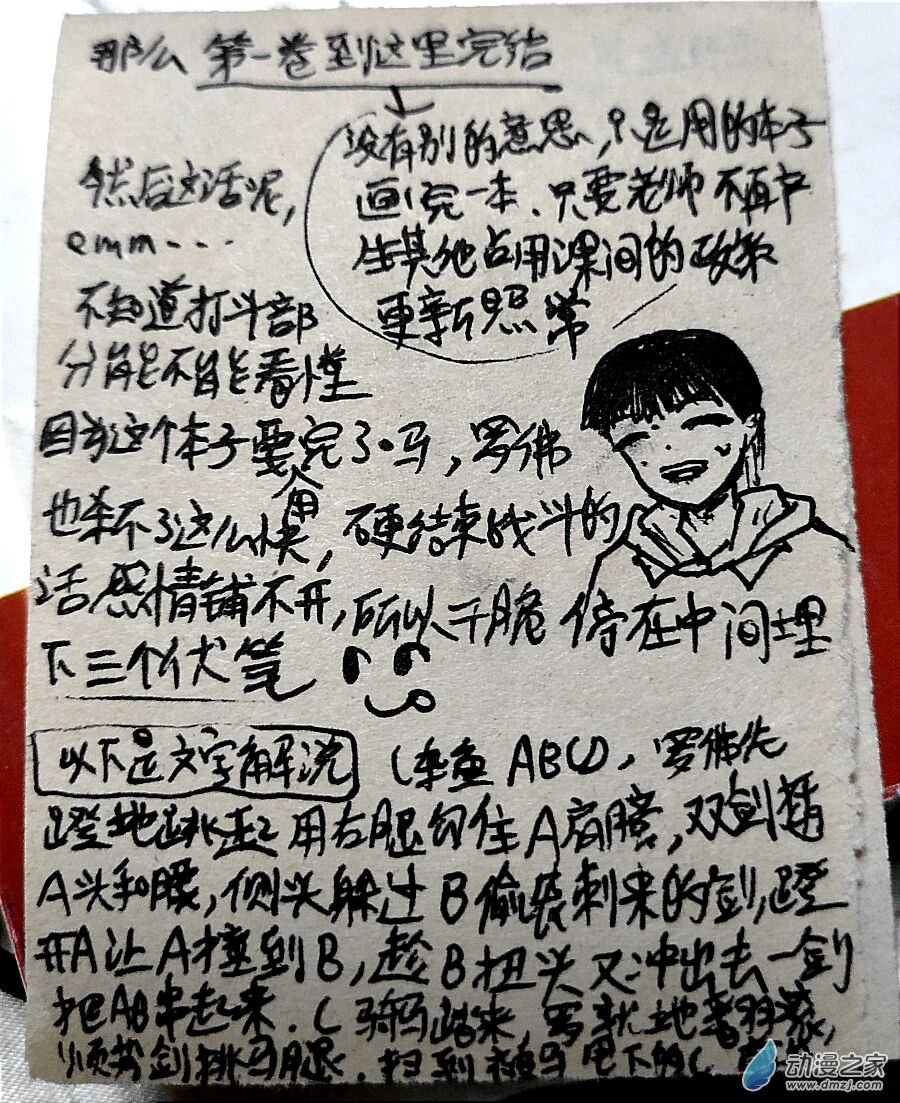 那么 第一卷到这里完结
没有别的意思,只是用的本子
画完一本.只要老师不再中
生其他占用课间的政策
更新照常
然后这话呢,
emm....
不知道打斗部
分能不能看懂
因为这个本子要用完了吗,罗佛
也杀不了这么快,硬结束战斗的
话感情铺不开,所以干脆停在中间埋
下三个伏笔
以下是文字解说 (杂鱼ABC),罗佛先
蹬地跳起用右腿勾住A肩膀,双剑插
A头和腰,侧头躲过B偷袭刺来的剑,蹬
开A让A撞到B,趁B扭头又冲出去一剑
把AB串起来.C骑马踏来,罗就地翻滚,
顺势剑挑马腿.
动漫之家
www.dmzj.com